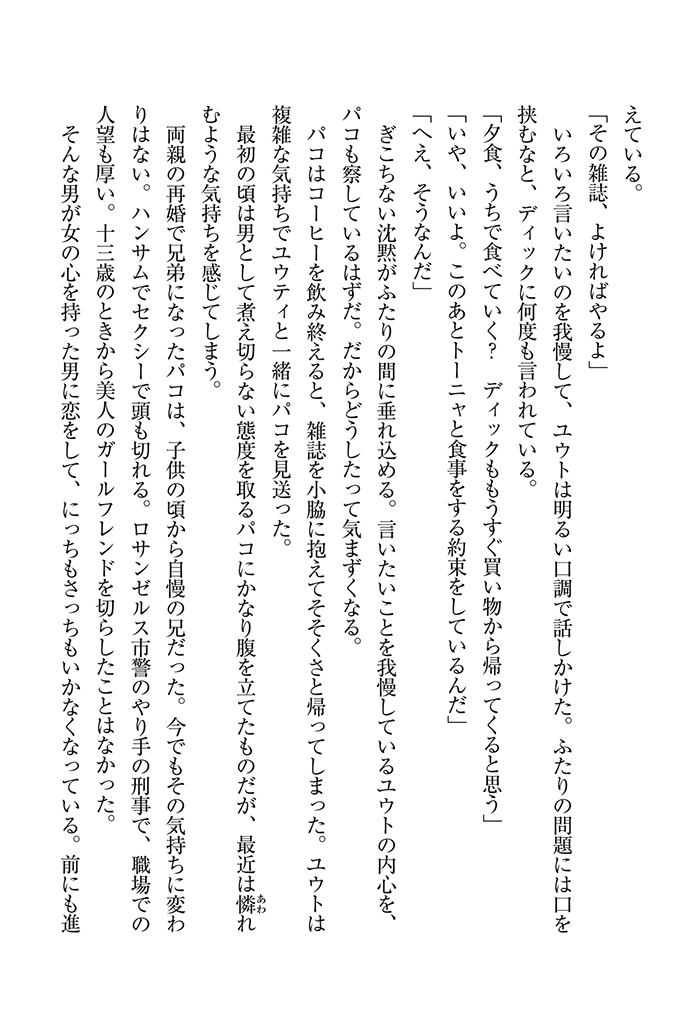 えている。
「その雑誌、よければやるよ」
いろいろ言いたいのを我慢して、ユウトは明るい口調で話しかけた。ふたりの問題には口を
挟むなと、ディックに何度も言われている。
「夕食、うちで食べていく？　ディックももうすぐ買い物から帰ってくると思う」
「いや、いいよ。このあとトーニャと食事をする約束をしているんだ」
「へえ、そうなんだ」
ぎこちない沈黙がふたりの間に垂れ込める。言いたいことを我慢しているユウトの内心を、
パコも察しているはずだ。だからどうしたって気まずくなる。
パコはコーヒーを飲み終えると、雑誌を小脇に抱えてそそくさと帰ってしまった。ユウトは
複雑な気持ちでユウティと一緒にパコを見送った。
最初の頃は男として煮え切らない態度を取るパコにかなり腹を立てたものだが、最近は憐れ
あわ
むような気持ちを感じてしまう。
両親の再婚で兄弟になったパコは、子供の頃から自慢の兄だった。今でもその気持ちに変わ
りはない。ハンサムでセクシーで頭も切れる。ロサンゼルス市警のやり手の刑事で、職場での
人望も厚い。十三歳のときから美人のガールフレンドを切らしたことはなかった。
そんな男が女の心を持った男に恋をして、にっちもさっちもいかなくなっている。前にも進